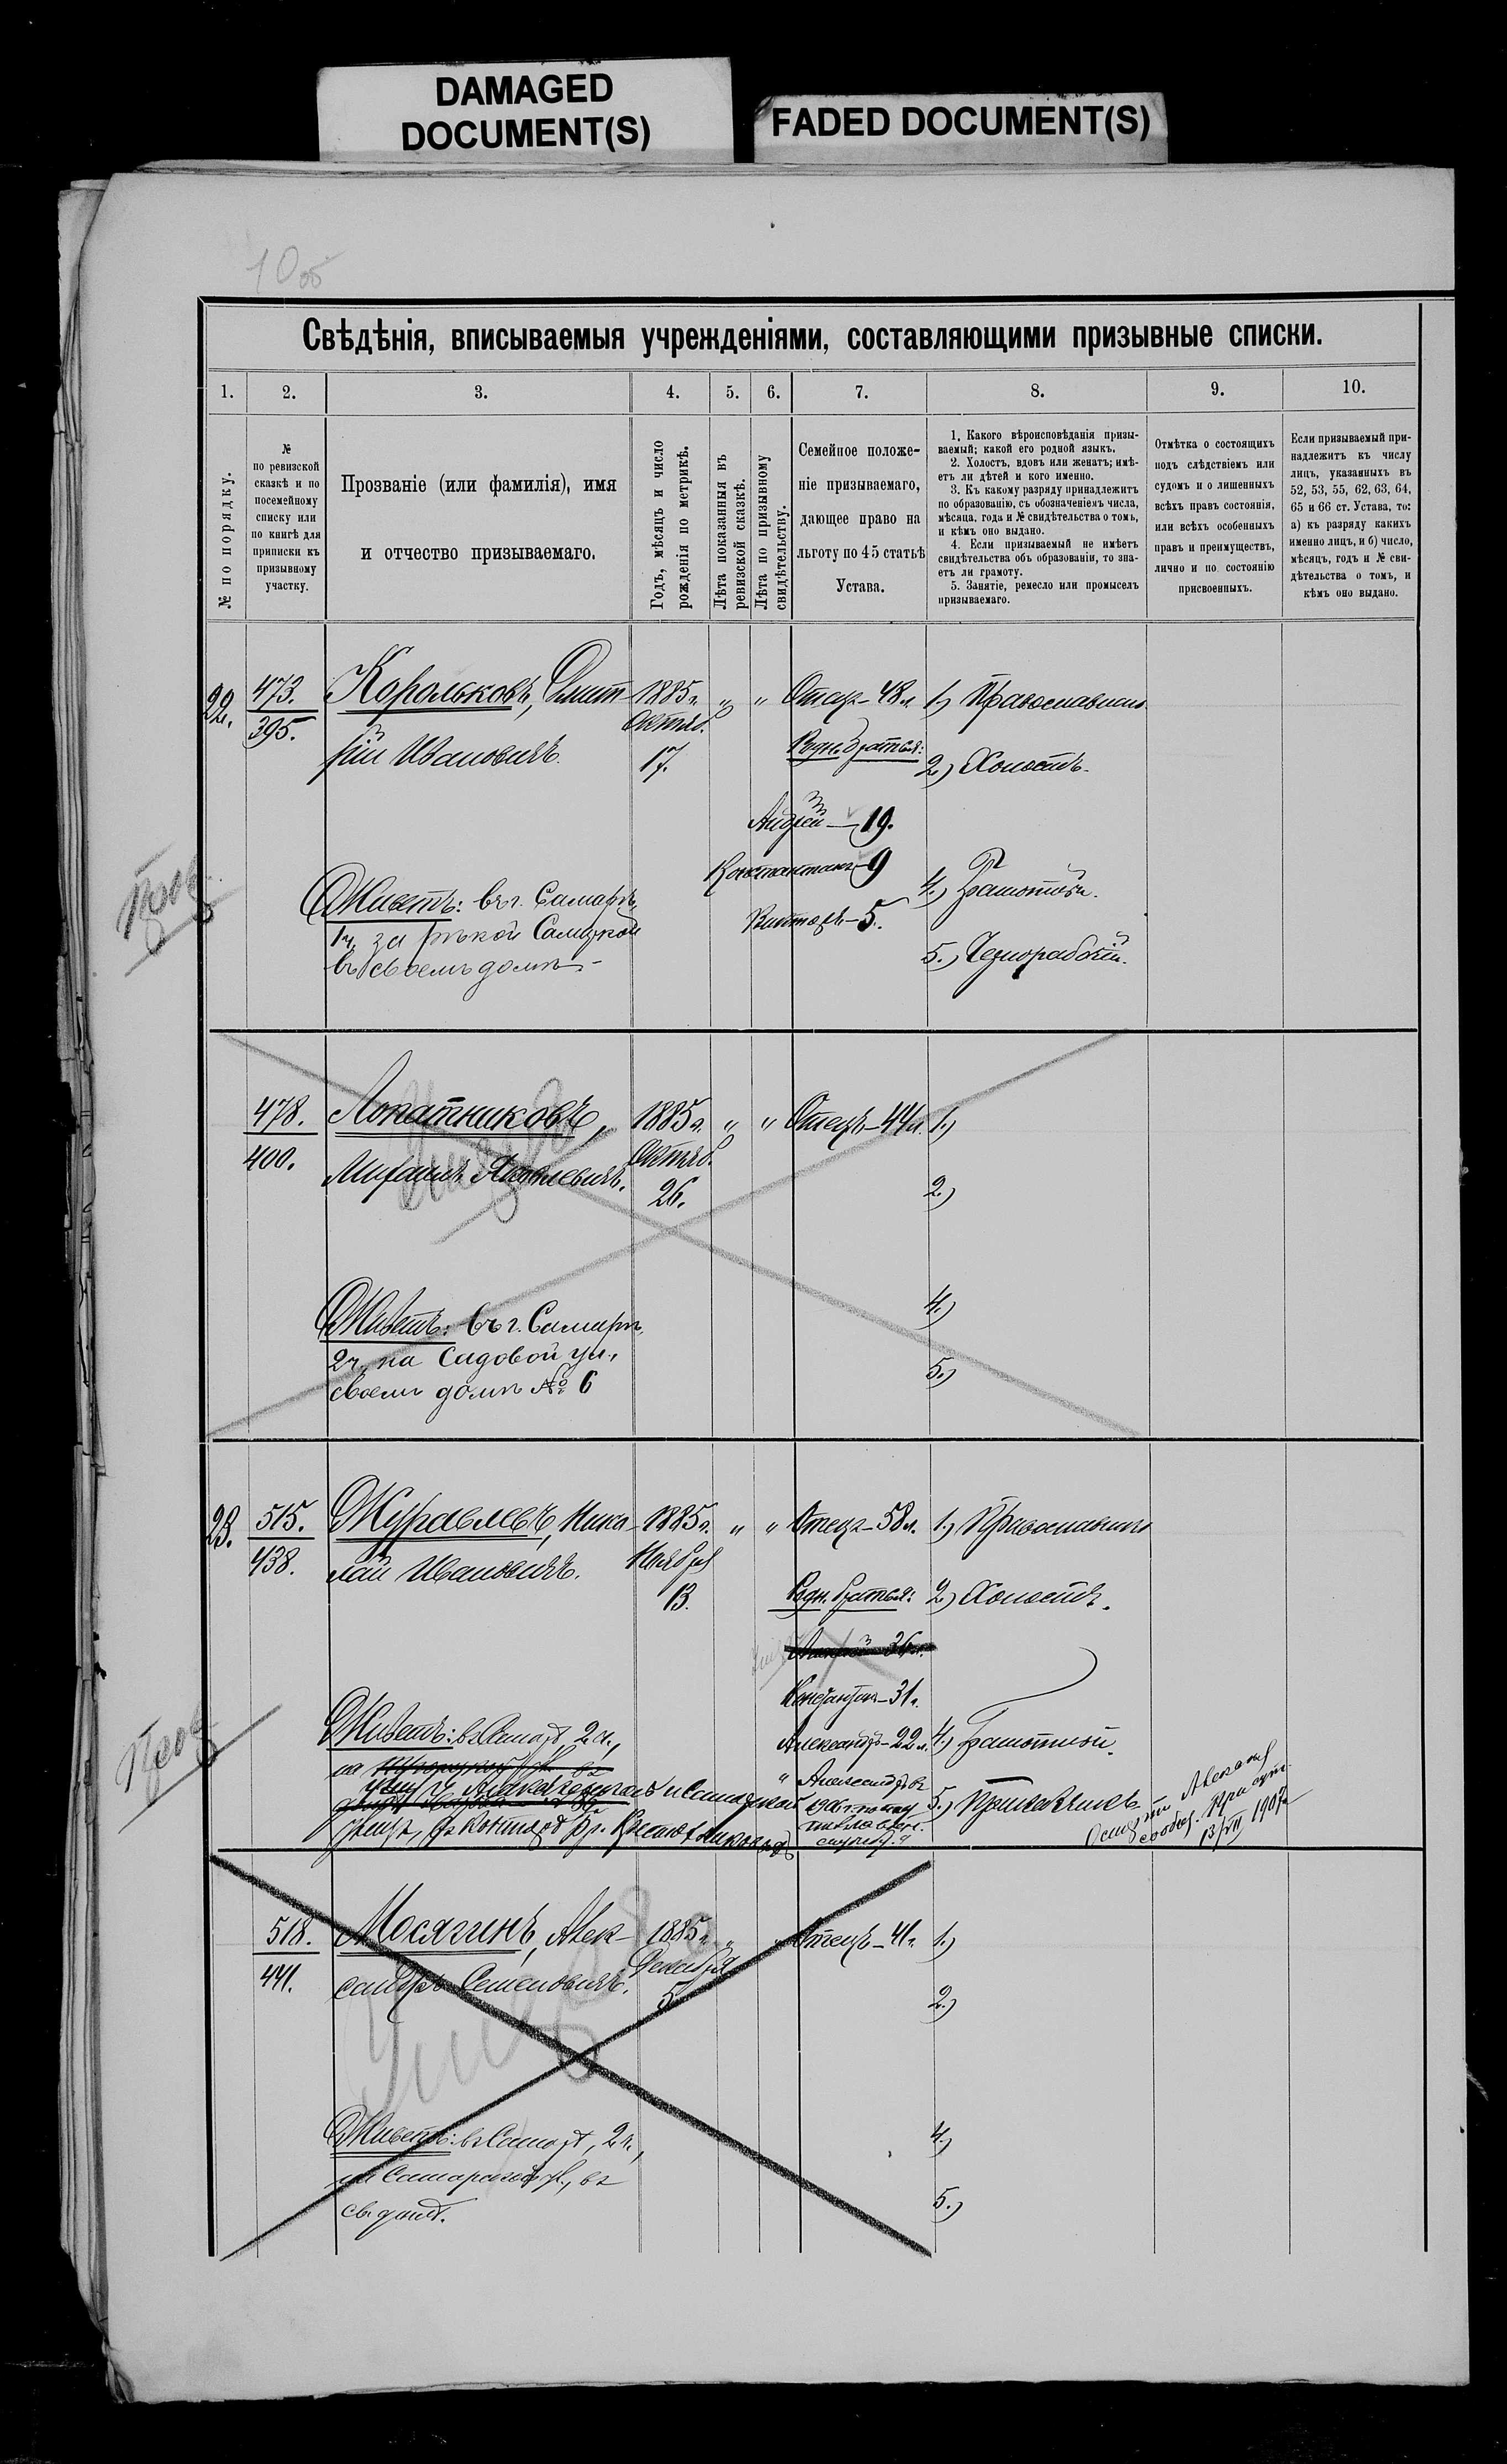 DAMAGED
DOCUMENT(S)
FADED DOCUMENT(S)
10 об
Свѣдѣнія, вписываемыя учрежденіями, составляющими призывные списки.
1. 2. 3. 4. 5. 6. 7. 8. 9. 10.
№ по порядку.
№
по ревизской
сказкѣ и по
посемейному
списку или
по книгѣ для
приписки къ
призывному
участку.
Прозваніе (или фамилія), имя
и отчество призываемаго.
Годъ, мѣсяцъ и число
рожденія по метрикѣ.
Лѣта показанныя въ
ревизской сказкѣ.
Лѣта по призывному
свидѣтельству.
Семейное положе-
ніе призываемаго,
дающее право на
льготу по 45 статьѣ
Устава.
1. Какого вѣроисповѣданія призы-
ваемый; какой его родной языкъ.
2. Холостъ, вдовъ или женатъ; имѣ-
етъ ли дѣтей и кого именно.
3. Къ какому разряду принадлежитъ
по образованію, съ обозначеніемъ числа,
мѣсяца, года и № свидѣтельства о томъ,
и кѣмъ оно выдано.
4. Если призываемый не имѣетъ
свидѣтельства объ образованіи, то зна-
етъ ли грамоту.
5. Занятіе, ремесло или промыселъ
призываемаго.
Отмѣтка о состоящихъ
подъ слѣдствіемъ или
судомъ и о лишенныхъ
всѣхъ правъ состоянія,
или всѣхъ особенныхъ
правъ и преимуществъ,
лично и по состоянію
присвоенныхъ.
Если призываемый при-
надлежитъ къ числу
лицъ, указанныхъ въ
52, 53, 55, 62, 63, 64,
65 и 66 ст. Устава, то:
а) къ разряду какихъ
именно лицъ, и б) число,
мѣсяцъ, годъ и № сви-
дѣтельства о томъ, и
кѣмъ оно выдано.
22. 473. Корольковъ, Дмит- 1885 г. " " Отецъ - 48 л. 1.) Православнаго
395. рій Ивановичъ. Октяб. Родн. братья:
17. 2.) Холостъ.
Андрей - 19.
Константинъ - 9
Викторъ - 5. 4.) Грамотный.
Живетъ: въ г. Самарѣ,
1 ч. за рѣкой Самаркой
въ своемъ домѣ. 5.) Чернорабочій.
478. Лопатниковъ, 1885 г. " " Отецъ - 44 л. 1.)
400. Михаилъ Яковлевичъ. Октяб.
26. 2.)
Живетъ: въ г. Самарѣ,
2 ч. на Садовой ул.,
своемъ домѣ № 6
4.)
5.)
23. 515. Журавлевъ, Нико- 1885 г. " " Отецъ - 58 л. 1.) Православнаго
438. лай Ивановичъ. Ноября
13. Родн. братья: 2.) Холостъ.
36 л.
Константинъ - 31 г.
Живетъ: въ Самарѣ, 2 ч., Александръ - 22 л. 4.) Грамотный.
на
" Александръ въ
1906 г. 5.) Прикащикъ
13/VII 1907 г.
518. Мосягинъ, Алек- 1885 г. " " Отецъ - 41 г. 1.)
441. сандръ Семеновичъ. Декабря
5 2.)
Живетъ: въ Самарѣ, 2 ч.,
на Самарской ул., въ
св. домѣ.
4.)
5.)